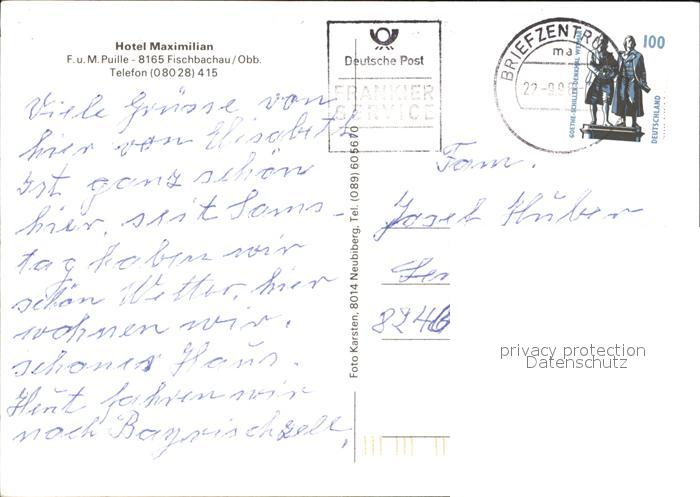 Hotel Maximilian
F. u. M. Puille - 8165 Fischbachau/Obb.
Telefon (0 80 28) 4 15
Viele Grüsse von
hier von Elisabeth
Ist ganz schön
hier, seit Sams-
tag haben wir
schön Wetter, hier
wohnen wir.
schönes Haus.
Heut fahren wir
nach Bayrischzell.
Foto Karsten, 8014 Neubiberg, Tel. (089) 605670
Deutsche Post
FRANKIER
SERVICE
BRIEFZENTRU
ma
22-9.9
GOETHE-SCHILLER-DENKMAL WEIMAR
100
DEUTSCHLAND
Fam.
Josef Huber
8246
privacy protection
Datenschutz